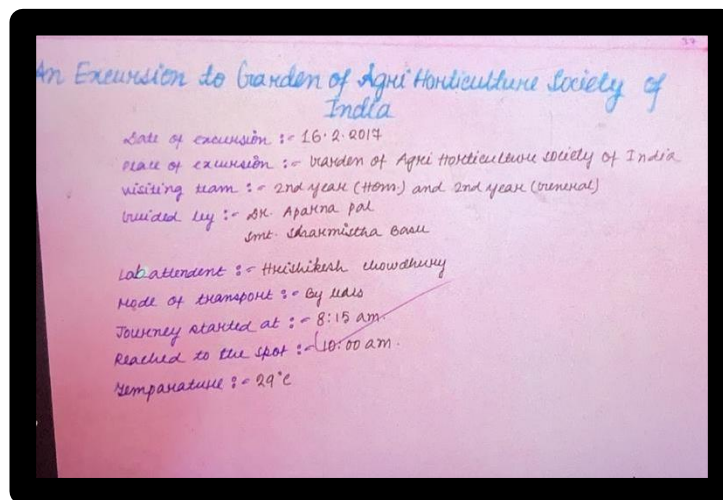 37
An Excursion to Garden of Agri Horticulture Society of
India
Date of excursion :- 16.2.2017
Place of excursion :- Garden of Agri Horticulture society of India
visiting team :- 2nd year (Hom.) and 2nd year (General)
Guided by :- DR. Aparna pal
Smt. Sharmistha Basu
Lab attendent :- Hrishikesh chowdhury
Mode of transport :- By
Journey started at :- 8:15 am.
Reached to the spot :- 10:00 am.
Temparature :- 29°c